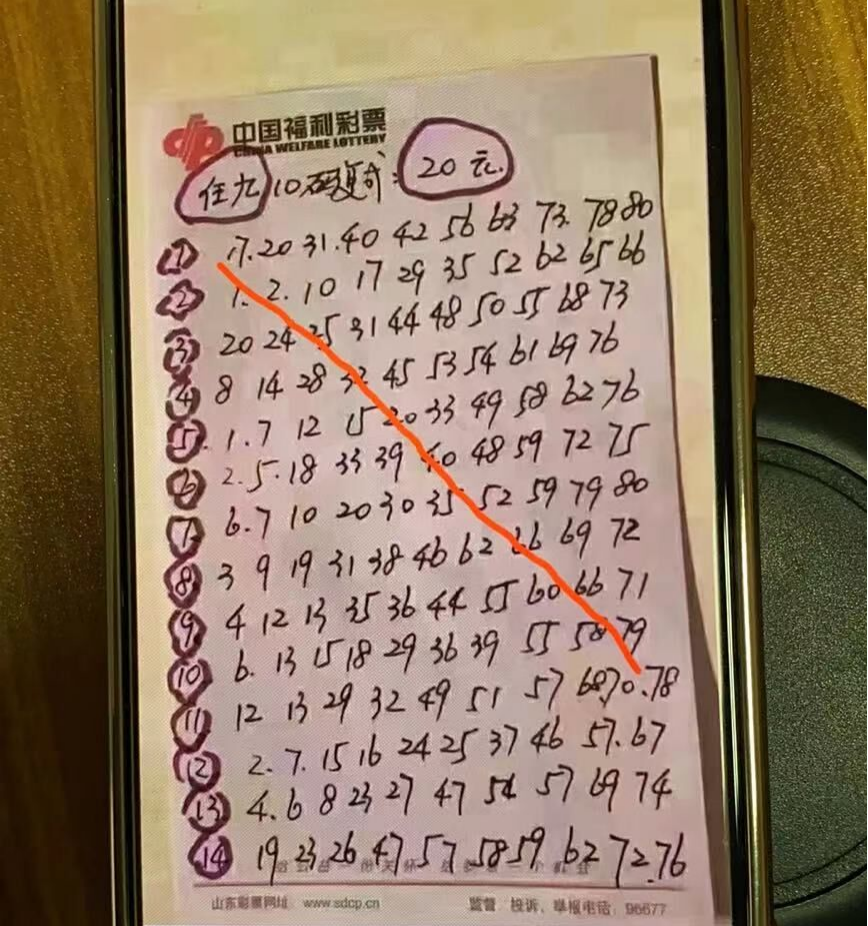 中国福利彩票
CHINA WELFARE LOTTERY
任九 10码复式: 20元.
① 7.20 31.40 42 56 63 73. 78 80
② 1. 2. 10 17 29 35 52 62 65 66
③ 20 24 25 31 44 48 50 55 68 73
④ 8 14 28 32 45 53 54 61 69 76
⑤. 1.7 12 15 20 33 49 58 62 76
⑥ 2.5.18 33 39 40 48 59 72 75
⑦ 6.7 10 20 30 35 52 59 79 80
⑧ 3 9 19 31 38 46 62 66 69 72
⑨ 4 12 13 35 36 44 55 60 66 71
⑩ 6. 13 15 18 29 36 39 55 58 79
⑪ 12 13 29 32 49 51 57 68.70.78
⑫ 2.7.15 16 24 25 37 46 57.67
⑬ 4.6 8 23 27 47 54 57 69 74
⑭ 19 23 26 47 57 58 59 62 72.76
山东彩票网址 www.sdcp.cn 监督、投诉、举报电话: 96677